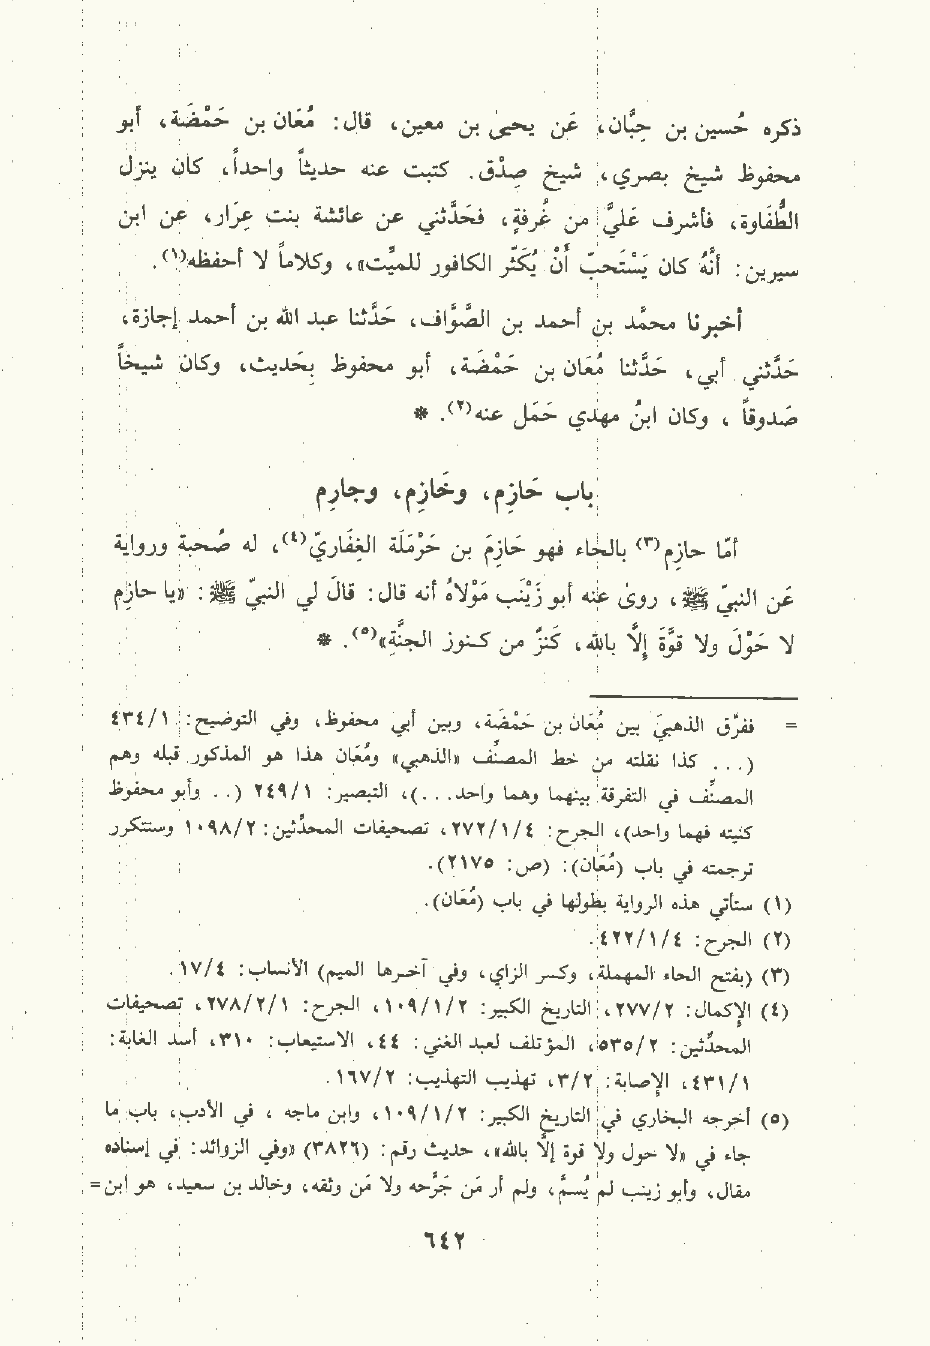 ذكره حُسين بن حِبَّان، عَن يحيى بن معين، قال: مُعَان بن حَمْضَة، أبو
محفوظ شيخ بصري، شيخ صِدْق. كتبت عنه حديثاً واحداً، كان ينزل
الطُّفَاوة، فأشرف عَليَّ من غُرفةٍ، فحَدَّثني عن عائشة بنت عِرَار، عن ابن
سيرين: أنَّهُ كان يَسْتَحبّ أُنْ يُكَثِّر الكافور للميِّت»، وكلاماً لا أحفظه(١).
أخبرنا محمَّد بن أحمد بن الصَّوَّاف، حَدَّثنا عبد الله بن أحمد إجازة،
حَدَّثني أبي، حَدَّثنا مُعَان بن حَمْضَة، أبو محفوظ بحَديث، وكان شيخاً
صَدوقاً ، وكان ابنُ مهدي حَمَل عنه(٢). *
باب حَازِم، وخَازِم، وجارِم
أمّا حازِم(٣) بالحاء فهو حَازِمَ بن حَرْمَلَة الغِفَاريّ(٤)، له صُحبة ورواية
عَن النبيّ ﷺ، روىٰ عنه أبو زَيْنَب مَوْلاهُ أنه قال: قالَ لي النبيّ ﷺ: «يا حازِم
لا حَوْلَ ولا قوَّةَ إلَّا بالله، كَنزٌ من كـنوز الجنَّةِ»(٥). *
= ففرَّق الذهبيّ بين مُعَان بن حَمْضَة، وبين أبي محفوظ، وفي التوضيح: ٤٣٤/١
(... كذا نقلته من خط المصنِّف «الذهبي» ومُعَان هذا هو المذكور قبله وهم
المصنِّف في التفرقة بينهما وهما واحد...)، التبصير: ٢٤٩/١ (.. وأبو محفوظ
كنيته فهما واحد)، الجرح: ٢٧٢/١/٤، تصحيفات المحدِّثين: ١٠٩٨/٢ وستتكرر
ترجمته في باب (مُعَان): (ص: ٢١٧٥).
(١) ستأتي هذه الرواية بطولها في باب (مُعَان).
(٢) الجرح: ٤٢٢/١/٤.
(٣) (بفتح الحاء المهملة، وكسر الزاي، وفي آخرها الميم) الأنساب: ١٧/٤.
(٤) الإكمال: ٢٧٧/٢، التاريخ الكبير: ١٠٩/١/٢، الجرح: ٢٧٨/٢/١، تصحيفات
المحدِّثين: ٥٣٥/٢، المؤتلف لعبد الغني: ٤٤، الاستيعاب: ٣١٠، أسد الغابة:
٤٣١/١، الإصابة: ٣/٢، تهذيب التهذيب: ١٦٧/٢.
(٥) أخرجه البخاري في التاريخ الكبير: ١٠٩/١/٢، وابن ماجه ، في الأدب، باب ما
جاء في «لا حول ولا قوة إلَّا بالله»، حديث رقم: (٣٨٢٦) «وفي الزوائد: في إسناده
مقال، وأبو زينب لم يُسمَّ، ولم أر مَن جَرَّحه ولا مَن وثقه، وخالد بن سعيد، هو ابن=
٦٤٢